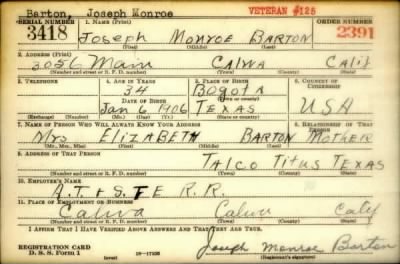 Barton, Joseph Monroe VETERAN #125
SERIAL NUMBER 1. NAME (Print) ORDER NUMBER
3418 Joseph MONROE BARTON 2391
(First) (Middle) (Last)
2. ADDRESS (Print)
3056 Main CALWA CALIF
(Number and street or R. F. D. number) (Town) (County) (State)
3. TELEPHONE 4. AGE IN YEARS 5. PLACE OF BIRTH 6. COUNTRY OF CITIZENSHIP
34 Bogota
DATE OF BIRTH (Town or county)
Jan 6 1906 TEXAS USA
(Exchange) (Number) (Mo.) (Day) (Yr.) (State or country)
7. NAME OF PERSON WHO WILL ALWAYS KNOW YOUR ADDRESS 8. RELATIONSHIP OF THAT PERSON
Mrs ELIZABETH BARTON MOTHER
(Mr., Mrs., Miss) (First) (Middle) (Last)
9. ADDRESS OF THAT PERSON
TALCO TITUS TEXAS
(Number and street or R. F. D. number) (Town) (County) (State)
10. EMPLOYER'S NAME
A.T. & S. FE R.R.
11. PLACE OF EMPLOYMENT OR BUSINESS
Calwa Calwa Calif
(Number and street or R. F. D. number) (Town) (County) (State)
I AFFIRM THAT I HAVE VERIFIED ABOVE ANSWERS AND THAT THEY ARE TRUE.
REGISTRATION CARD Joseph Monroe Barton
D. S. S. Form 1 (over) 16-17105 (Registrant's signature)